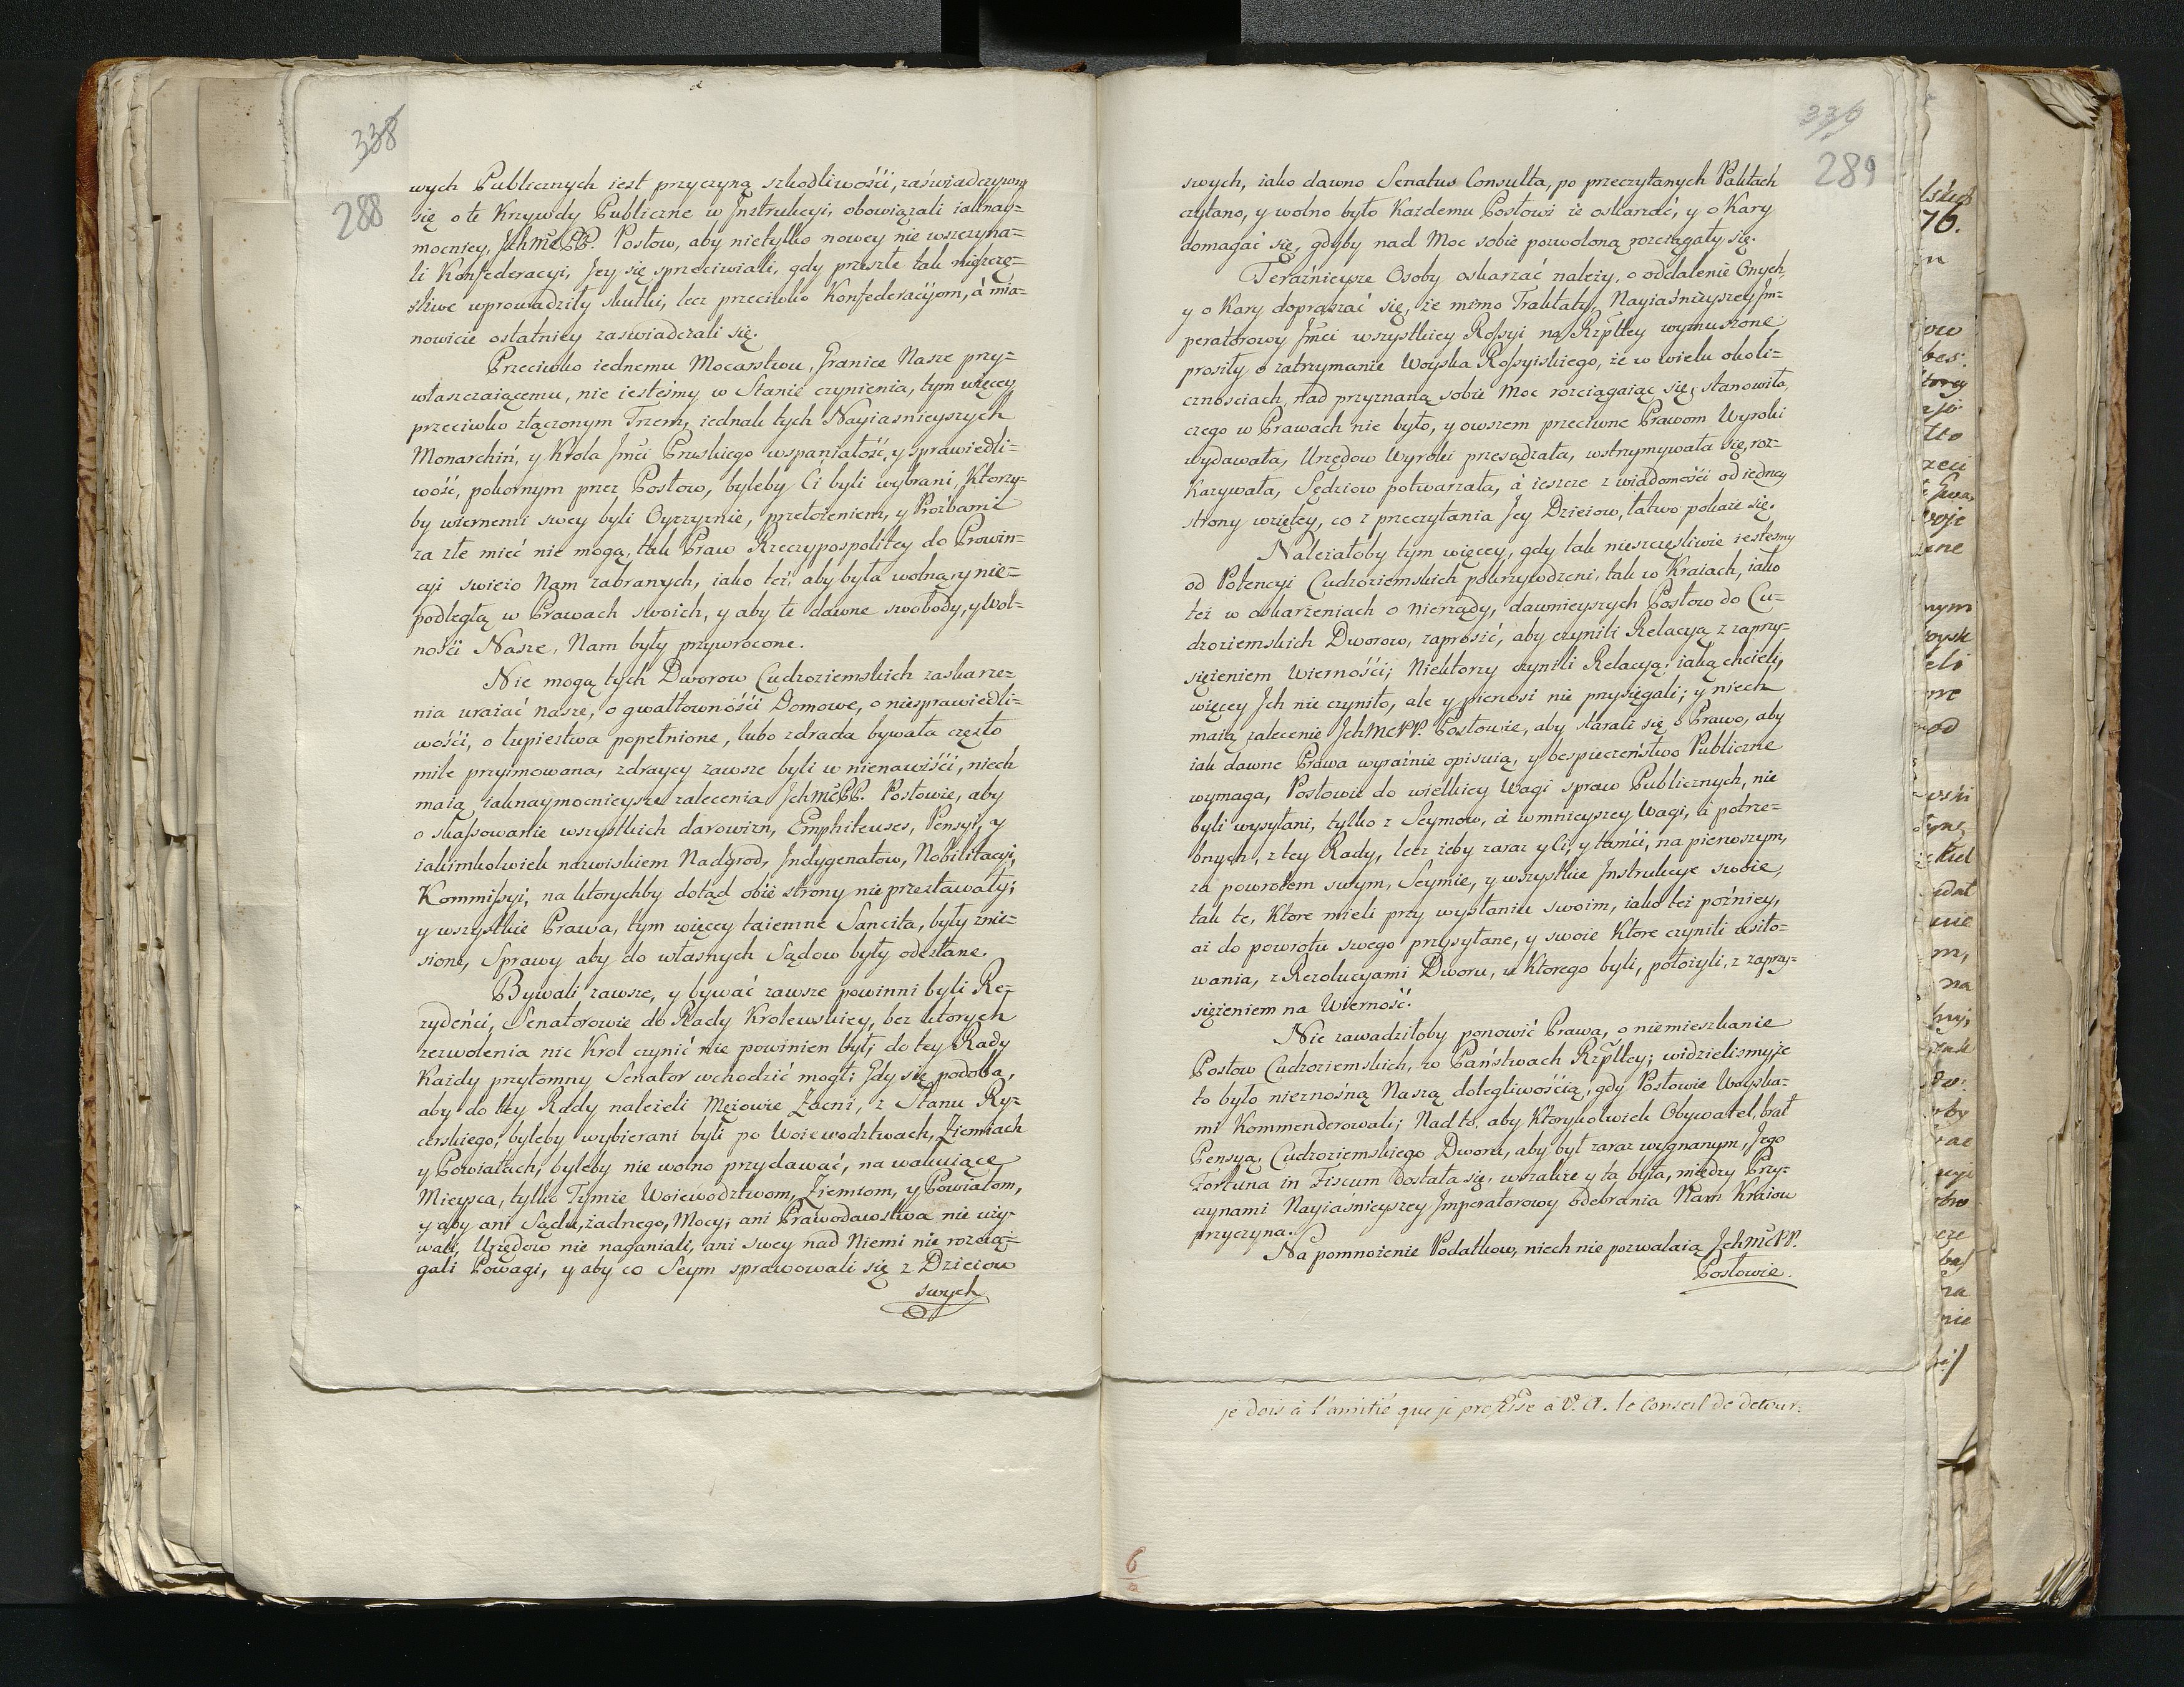 338
288
wych Publicznych iest przyczyną szkodliwości, zaświadczywszy
się o te Krzywdy Publiczne w Instrukcyi, obowiązali iaknay=
mocniey, JchMċPP. Posłow, aby nietylko nowey nie wszczyna=
li Konfederacyi, Jey się sprzeciwiali, gdy przeszłe tak nieszczę=
śliwe wprowadziły skutki, lecz przeciwko Konfederacyjom, á mia=
nowicie ostatniey zaswiadczali się.
Przeciwko iednemu Mocarstwu, Granice Nasze przy=
właszczaiącemu, nie iesteśmy w Stanie czynienia, tym więcey
przeciwko złączonym Trzem, iednak tych Nayiasnieyszych
Monarchiń, y Krola Jmċi Pruskiego wspaniałość, y sprawiedli=
wość, pokornym przez Posłow, byleby Ci byli wybrani, Ktorzy=
by wiernemi swey byli Oyczyznie, przełożeniem, y Proźbami
za złe mieć nie mogą, tak Praw Rzeczypospolitey do Prowin=
cyi swieżo Nam zabranych, iako też, aby była wolną, y nie=
podległą w Prawach swoich, y aby te dawne swobody, y Wol=
ności Nasze, Nam były przywrocone.
Nie mogą tych Dworow Cudzoziemskich zaskarze=
nia urażać nasze, o gwałtowności Domowe, o niesprawiedli=
wości, o łupiestwa popełnione, lubo zdrada bywała często
mile przyimowana, zdraycy zawsze byli w nienawiści, niech
maią iaknaymocnieysze zalecenia JchMċPP. Posłowie, aby
o skassowanie wszystkich darowizn, Emphiteuses, Pensyi, y
iakimkolwiek nazwiskiem Nadgrod, Jndygenatow, Nobilitacyi,
Kommissyi, na ktorychby dotąd obie strony nie przestawały;
y wszystkie Prawa, tym więcey taiemne Sancita, były znie=
sione, Sprawy aby do własnych Sądow były odesłane.
Bywali zawsze, y bywać zawsze powinni byli Re=
zydeńci, Senatorowie do Rady Krolewskiey, bez ktorych
zezwolenia nic Krol czynić nie powinien był; do tey Rady
Każdy przytomny Senator wchodzić mogł; Gdy się podoba,
aby do tey Rady należeli Mężowie Zacni, z Stanu Ry=
cerskiego, byleby wybierani byli po Woiewodztwach, Ziemiach
y Powiatach; byleby nie wolno przydawać, na wakuiące
Mieysca, tylko Tymże Woiewodztwom, Ziemiom, y Powiatom,
y aby ani Sądu, żadnego, Mocy, ani Prawodawstwa nie uży=
wali, Urzędow nie naganiali, ani swey nad Niemi nie rozcią=
gali Powagi, y aby co Seym sprawowali się z Dzieiow
swych
336
289
swych, iako dawno Senatus Consulta, po przeczytanych Paktach
czytano, y wolno było Każdemu Posłowi ie oskarzać, y o Kary
domagać się, gdyby nad Moc sobie pozwoloną rozciągały się.
Teraźnieysze Osoby oskarzać należy, o oddalenie Onych,
y o Kary dopraszać się, że mimo Traktaty, Nayiaśnieyszey Jm=
peratorowy Jmċi wszystkiey Rossyi na Rzpltey wymuszone
prosiły o zatrzymanie Woyska Rossyiskiego, że w wielu okoli=
cznosciach, nad przyznaną sobie Moc rozciągaiąc się, stanowiła,
czego w Prawach nie było, y owszem przeciwne Prawom Wyroki
wydawała, Urzędow Wyroki przesądzała, wstrzymywała się, roz=
kazywała, Sędziow potwarzała, á ieszcze z wiadomości od iedney
strony wziętey, co z przeczytania Jey Dzieiow, łatwo pokaże się.
Należałoby tym więcey, gdy tak nieszczęsliwie iestesmy
od Potencyi Cudzoziemskich pokrzywdzeni, tak w Kraiach, iako
też w oskarżeniach o nierządy, dawnieyszych Posłow do Cu=
dzoziemskich Dworow, zaprosić, aby czynili Relacyą z zaprzy=
siężeniem Wierności; Niektorzy czynili Relacyą, iaką chcieli,
więcey Jch nie czyniło, ale y pierwsi nie przysięgali; y niech
maią zalecenie JchMċPP. Posłowie, aby starali się o Prawo, aby
iak dawne Prawa wyraźnie opisuią, y bespieczeństwo Publiczne
wymaga, Posłowie do wielkiey Wagi spraw Publicznych, nie
byli wysyłani, tylko z Seymow, á w mnieyszey Wagi, á potrze=
bnych, z tey Rady, lecz żeby zaraz y Ci, y tamci, na pierwszym,
za powrotem swym, Seymie, y wszystkie Instrukcye swoie,
tak te, Ktore mieli przy wysłaniu swoim, iako też poźniey,
aż do powrotu swego przysyłane, y swoie Ktore czynili usiło=
wania, z Rezolucyami Dworu, u Ktorego byli, położyli, z zaprzy=
siężeniem na Wierność.
Nie zawadziłoby ponowić Prawa, o niemieszkanie
Posłow Cudzoziemskich, w Państwach Rzpltey; widzielismy że
to było nieznośną Naszą dolegliwością, gdy Posłowie Woyska=
mi Kommenderowali; Nad to, aby Ktoryżkolwiek Obywatel, brał
Pensyą, Cudzoziemskiego Dworu, aby był zaraz wygnanym, Jego
Fortuna in Fiscum dostała się, wszakże y ta była, między Przy=
czynami Nayiaśnieyszey Jmperatorowy odebrania Nam Kraiow
przyczyna.
Na pomnożenie Podatkow, niech nie pozwalaią JchMċPP.
Posłowie.
je dois à l'amitié que je professe à V. A. le Conseil de detour=
6